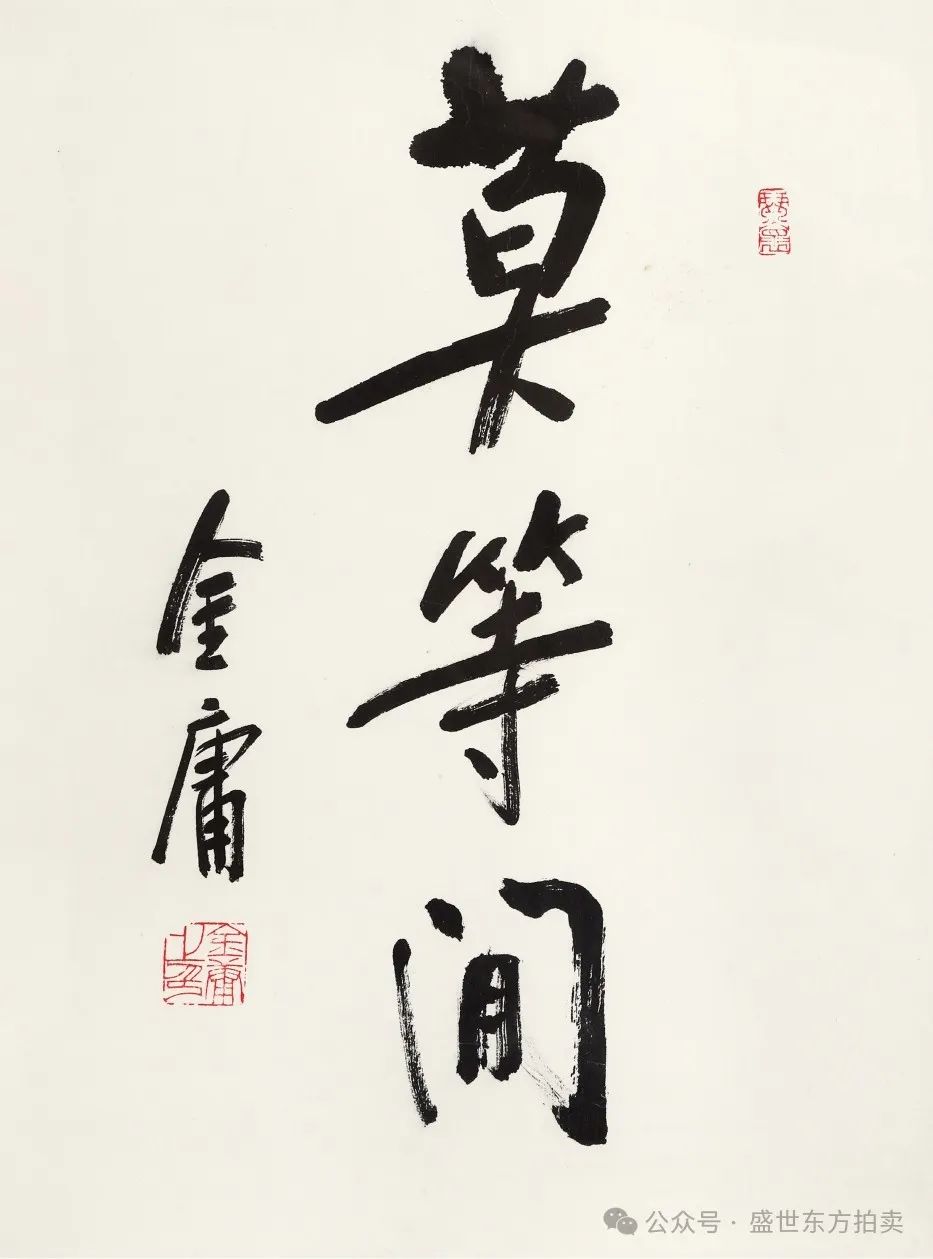 莫等閒
金庸
金庸之印
公众号·盛世东方拍卖